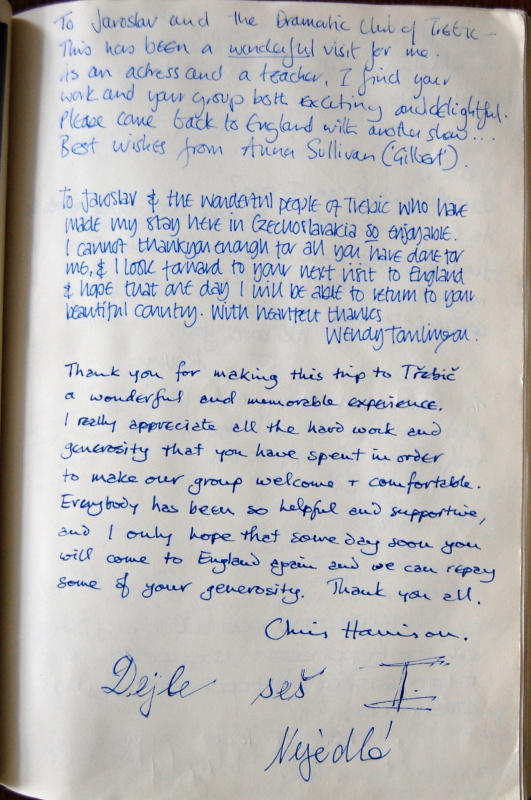 To Jaroslav and the Dramatic Club of Trebic –
This has been a wonderful visit for me.
As an actress and a teacher, I find your
work and your group both exciting and delightful.
Please come back to England with another show...
Best wishes from Anna Sullivan ('Gilbert').
To Jaroslav & the wonderful people of Trebic who have
made my stay here in Czechoslavakia so enjoyable.
I cannot thankyou enough for all you have done for
me, & I look forward to your next visit to England
& hope that one day I will be able to return to your
beautiful country. With heartfelt thanks
Wendy Tomlinson.
Thank you for making this trip to Třebič
a wonderful and memorable experience.
I really appreciate all the hard work and
generosity that you have spent in order
to make our group welcome + comfortable.
Everybody has been so helpful and supportive,
and I only hope that some day soon you
will come to England again and we can repay
some of your generosity. Thank you all.
Chris Harrison.
Dejle seš I.
Nejedlá